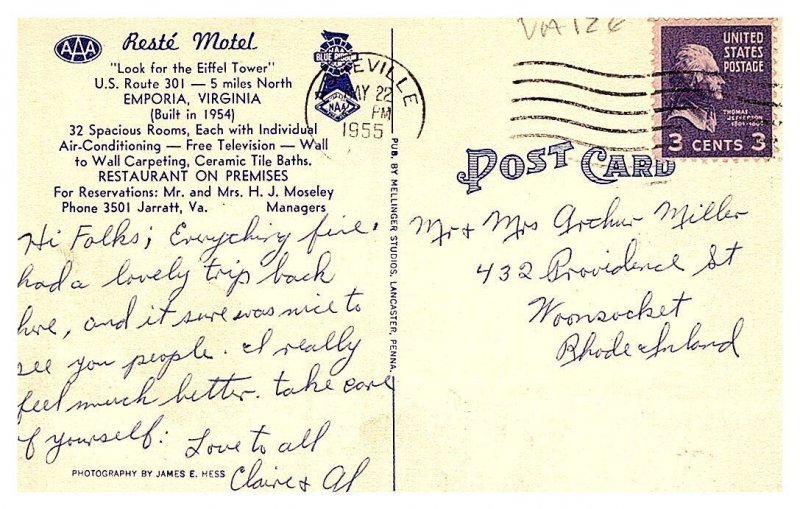 VA126
AAA
Resté Motel
"Look for the Eiffel Tower"
U.S. Route 301 — 5 miles North
EMPORIA, VIRGINIA
(Built in 1954)
32 Spacious Rooms, Each with Individual
Air-Conditioning — Free Television — Wall
to Wall Carpeting, Ceramic Tile Baths.
RESTAURANT ON PREMISES
For Reservations: Mr. and Mrs. H. J. Moseley
Phone 3501 Jarratt, Va. Managers
BLUE RIBBON
NAA
EVILLE
MAY 22
PM
1955
UNITED
STATES
POSTAGE
THOMAS
JEFFERSON
3 CENTS 3
POST CARD
PUB. BY MELLINGER STUDIOS, LANCASTER, PENNA.
Hi Folks; Everything fine.
had a lovely trip back
here, and it sure was nice to
see you people. I really
feel much better. take care
of yourself. Love to all
Claire & Al
PHOTOGRAPHY BY JAMES E. HESS
Mr & Mrs Arthur Miller
432 Providence St
Woonsocket
Rhode Island